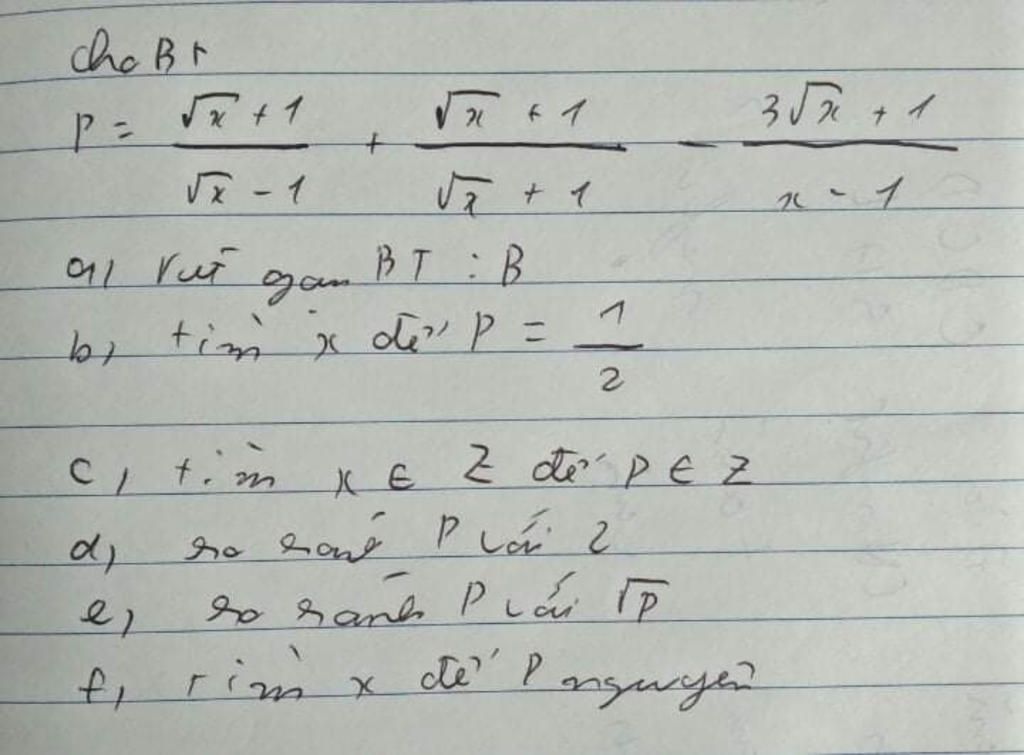 Cho BT
P = (√x + 1)/(√x - 1) + (√x + 1)/(√x + 1) - (3√x + 1)/(x - 1)
a, rút gọn BT : B
b, tìm x để P = 1/2
c, tìm x ∈ Z để P ∈ Z
d, so sánh P với 2
e, so sánh P với √P
f, tìm x để P nguyên